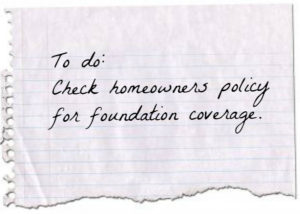 To do:
Check homeowners policy
for foundation coverage.